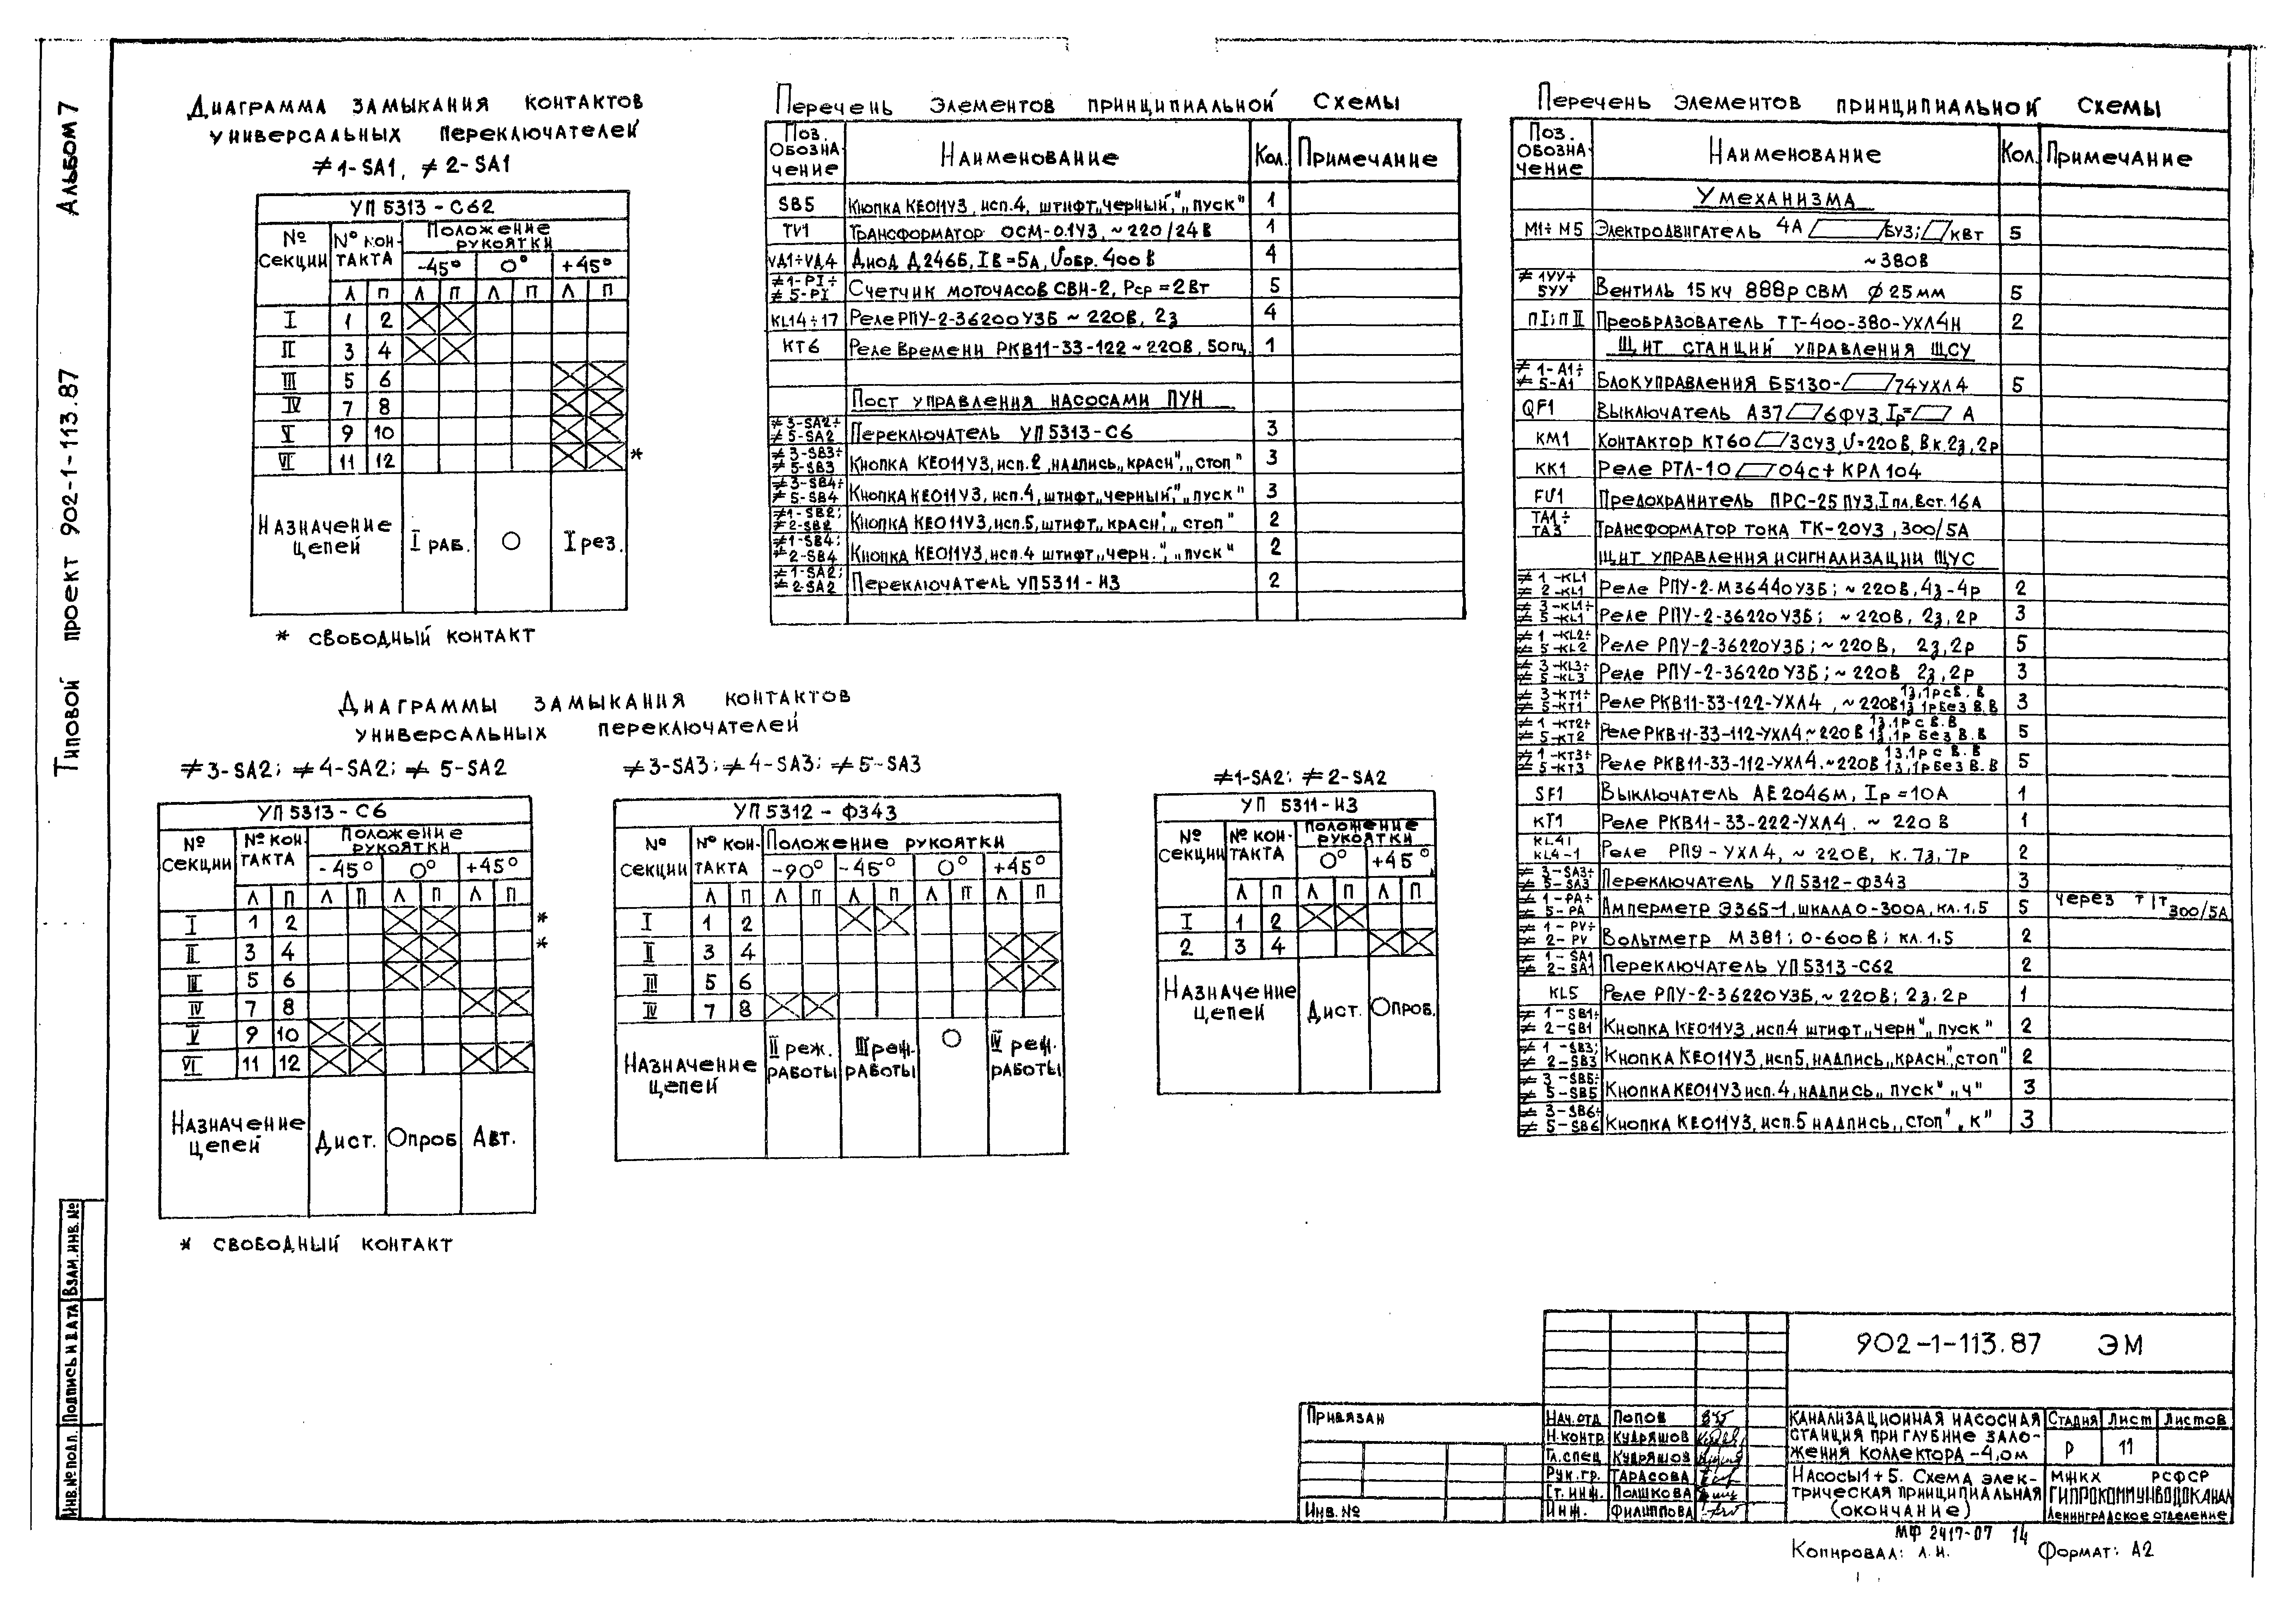 Альбом 7
Типовой проект 902-1-113.87
Диаграмма замыкания контактов
универсальных переключателей
≠1-SA1, ≠2-SA1
УП 5313-С62
№ секции
№ контакта
Положение рукоятки
-45° 0° +45°
Л П Л П Л П Л П
I 1 2
II 3 4
III 5 6
IV 7 8
V 9 10
VI 11 12 *
Назначение цепей I раб. О I рез.
* свободный контакт
Диаграммы замыкания контактов
универсальных переключателей
≠3-SA2; ≠4-SA2; ≠5-SA2
УП 5313-С6
№ секции
№ контакта
Положение рукоятки
-45° 0° +45°
Л П Л П Л П Л П
I 1 2 *
II 3 4 *
III 5 6
IV 7 8
V 9 10
VI 11 12
Назначение цепей Дист. Опроб Авт.
* свободный контакт
≠3-SA3; ≠4-SA3; ≠5-SA3
УП 5312-Ф343
№ секции
№ контакта
Положение рукоятки
-90° -45° 0° +45°
Л П Л П Л П Л П Л П
I 1 2
II 3 4
III 5 6
IV 7 8
Назначение цепей II реж. работы III реж. работы О IV реж. работы
≠1-SA2; ≠2-SA2
УП 5311-И3
№ секции
№ контакта
Положение рукоятки
0° +45°
Л П Л П Л П
I 1 2
2 3 4
Назначение цепей Дист. Опроб.
Перечень элементов принципиальной схемы
Поз. обозначение Наименование Кол. Примечание
SB5 Кнопка КЕ011У3, исп.4, штифт „черный", „пуск" 1
TV1 Трансформатор ОСМ-0.1У3, ~220/24В 1
VД1÷VД4 Диод Д246Б, Iв=5А, Uобр. 400В 4
≠1-PI÷ ≠5-PI Счетчик моточасов СВН-2, Рср=2Вт 5
KL14÷17 Реле РПУ-2-36200У3Б ~220В, 2з 4
KT6 Реле времени РКВ11-33-122 ~220В, 50гц. 1
Пост управления насосами ПУН
≠3-SA2÷ ≠5-SA2 Переключатель УП5313-С6 3
≠3-SB3÷ ≠5-SB3 Кнопка КЕ011У3, исп.2, надпись „красн", „стоп" 3
≠3-SB4÷ ≠5-SB4 Кнопка КЕ011У3, исп.4, штифт „черный", „пуск" 3
≠1-SB2; ≠2-SB2 Кнопка КЕ011У3, исп.5, штифт „красн", „стоп" 2
≠1-SB4; ≠2-SB4 Кнопка КЕ011У3, исп.4 штифт „черн.", „пуск" 2
≠1-SA2; ≠2-SA2 Переключатель УП5311-И3 2
Перечень элементов принципиальной схемы
Поз. обозначение Наименование Кол. Примечание
У механизма
М1÷М5 Электродвигатель 4А БУ3; кВт 5
~380В
≠1УУ÷ 5УУ Вентиль 15кч 888р СВМ ∅25мм 5
ПI; ПII Преобразователь ТТ-400-380-УХЛ4Н 2
Щит станций управления ЩСУ
≠1-А1÷ ≠5-А1 Блок управления Б5130- 74УХЛ4 5
QF1 Выключатель А37 6ФУ3, Iр= А
KM1 Контактор КТ60 3СУ3, U=220В, вк. 2з, 2р
KK1 Реле РТЛ-10 04с+КРЛ104
FU1 Предохранитель ПРС-25ПУ3, I пл.вст.16А
TA1÷ TA3 Трансформатор тока ТК-20У3, 300/5А
Щит управления и сигнализации ЩУС
≠1-KL1 ≠2-KL1 Реле РПУ-2-М36440У3Б; ~220В, 4з-4р 2
≠3-KL1÷ ≠5-KL1 Реле РПУ-2-36220У3Б; ~220В, 2з, 2р 3
≠1-KL2÷ ≠5-KL2 Реле РПУ-2-36220У3Б; ~220В, 2з, 2р 5
≠3-KL3÷ ≠5-KL3 Реле РПУ-2-36220У3Б; ~220В 2з, 2р 3
≠3-KT1÷ ≠5-KT1 Реле РКВ11-33-122-УХЛ4, ~220В 1з,1р с в.в 1з 1р без в.в 3
≠1-KT2÷ ≠5-KT2 Реле РКВ11-33-112-УХЛ4 ~220В 1з,1р с в.в 1з,1р без в.в 5
≠1-KT3÷ ≠5-KT3 Реле РКВ11-33-112-УХЛ4. ~220В 1з.1р с в.в 1з,1р без в.в 5
SF1 Выключатель АЕ2046М, Iр=10А 1
KT1 Реле РКВ11-33-222-УХЛ4. ~220В 1
KL4; KL4-1 Реле РП9-УХЛ4, ~220В, к. 7з, 7р 2
≠3-SA3÷ ≠5-SA3 Переключатель УП5312-Ф343 3
≠1-PA÷ ≠5-PA Амперметр Э365-1, шкала 0-300А, кл.1,5 5 через т/т 300/5А
≠1-PV÷ ≠2-PV Вольтметр М381; 0-600В; кл.1.5 2
≠1-SA1 ≠2-SA1 Переключатель УП5313-С62 2
KL5 Реле РПУ-2-36220У3Б, ~220В; 2з. 2р 1
≠1-SB1÷ ≠2-SB1 Кнопка КЕ011У3, исп.4 штифт „черн" „пуск" 2
≠1-SB3; ≠2-SB3 Кнопка КЕ011У3, исп5, надпись „красн", „стоп" 2
≠3-SB5÷ ≠5-SB5 Кнопка КЕ011У3 исп.4, надпись „пуск" „Ч" 3
≠3-SB6÷ ≠5-SB6 Кнопка КЕ011У3, исп.5 надпись „стоп", „К" 3
Инв.№ подл. Подпись и дата Взам.инв.№
Привязан
Инв.№
902-1-113.87 ЭМ
Нач.отд Попов
Н.контр Кудряшов
Гл.спец Кудряшов
Рук.гр. Тарасова
Ст.инж. Полшкова
Инж. Филиппова
Канализационная насосная
станция при глубине зало-
жения коллектора -4,0м
Насосы 1÷5. Схема элек-
трическая принципиальная
(окончание)
Стадия Лист Листов
Р 11
МЖКХ РСФСР
ГИПРОКОММУНВОДОКАНАЛ
Ленинградское отделение
МФ 2417-07 14
Копировал: Л.И. Формат: А2